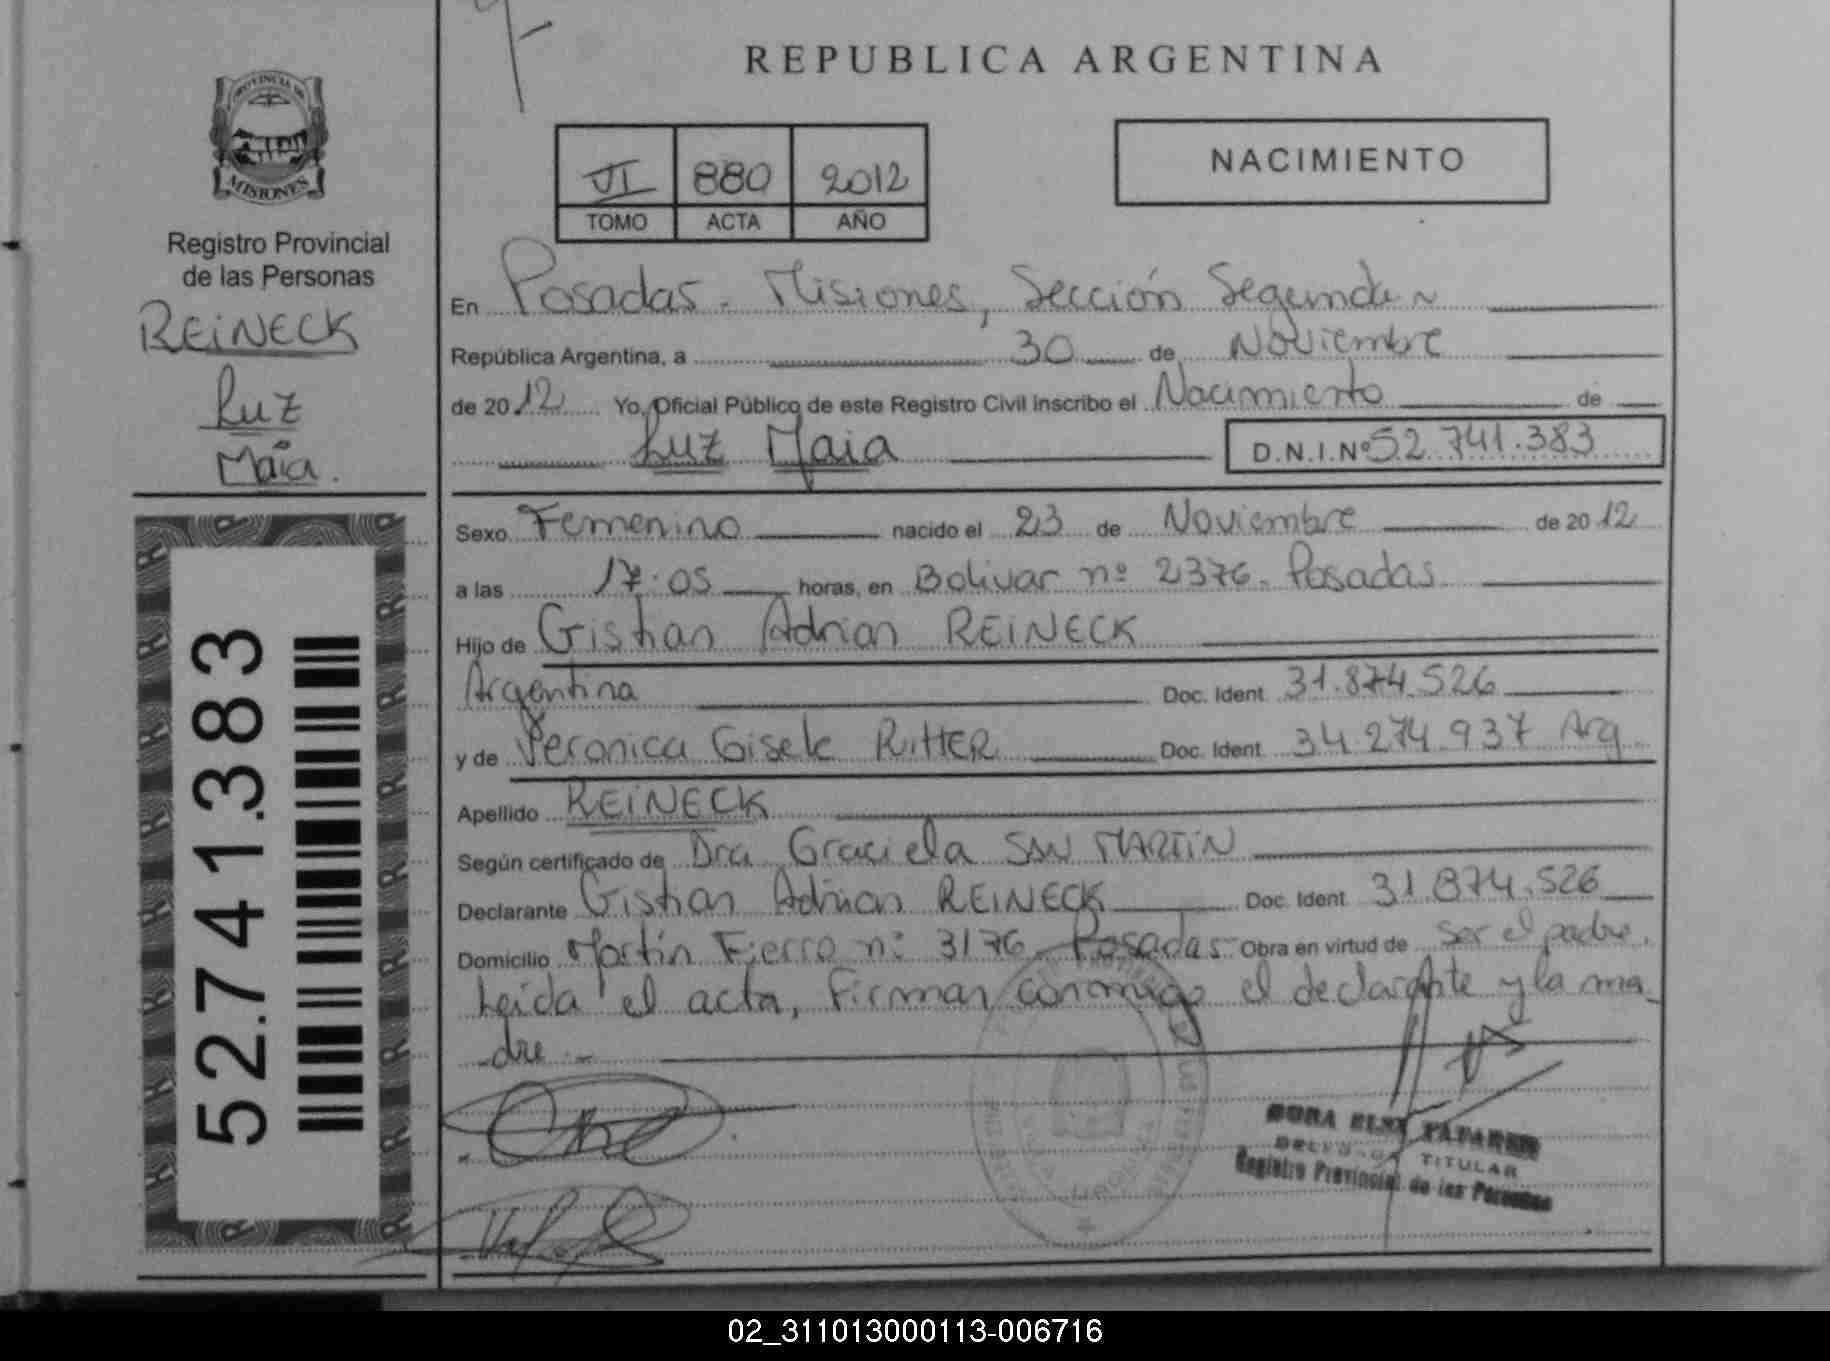 REPUBLICA ARGENTINA
PROVINCIA DE
MISIONES
Registro Provincial
de las Personas
REINECK
Luz
Maia.
52.741.383
VI 880 2012
TOMO ACTA AÑO
NACIMIENTO
En Posadas - Misiones, Sección Segunda
República Argentina, a 30 de Noviembre
de 2012 Yo, Oficial Público de este Registro Civil Inscribo el Nacimiento de
Luz Maia D.N.I.Nº 52.741.383
Sexo Femenino nacido el 23 de Noviembre de 2012
a las 17:05 horas, en Bolivar nº 2376. Posadas
Hijo de Cristian Adrian REINECK
Argentina Doc. Ident. 31.874.526
y de Veronica Gisele RITTER Doc. Ident. 34.274.937 Arg.
Apellido REINECK
Según certificado de Dra Graciela SAN MARTIN
Declarante Cristian Adrian REINECK Doc. Ident. 31.874.526
Domicilio Martín Fierro nº 3176 - Posadas - Obra en virtud de ser el padre.
Leida el acta, firman conmigo el declarante y la ma-
-dre.-
TITULAR
Registro Provincial de las Personas
02_311013000113-006716